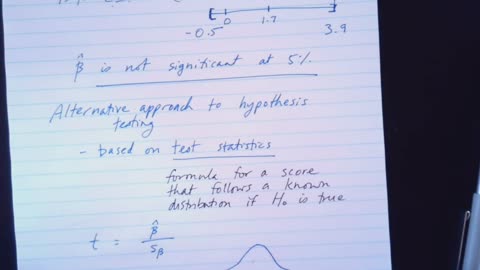 0 1.7
-0.5 3.9
β̂ is not significant at 5%
Alternative approach to hypothesis
testing
- based on test statistics
formula for a score
that follows a known
distribution if H₀ is true
t = β̂ / sβ